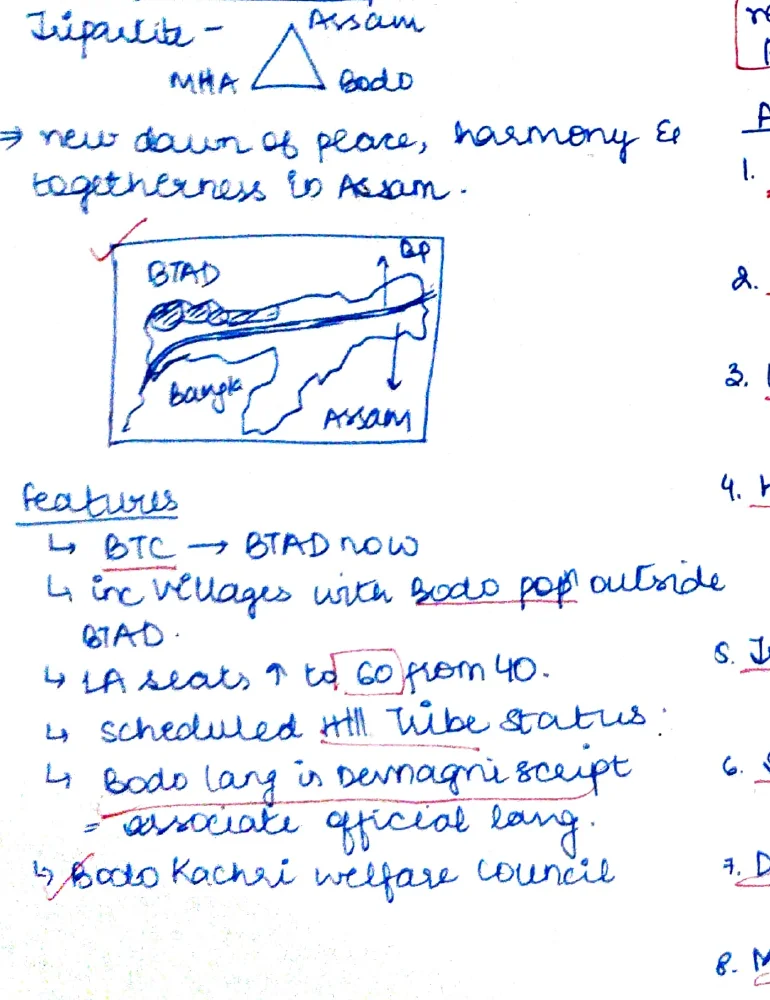 Tripartite - Assam
MHA Bodo
⇒ new dawn of peace, harmony &
togetherness in Assam.
BTAD
Bangla
Assam
Features
↳ BTC → BTAD now
↳ inc villages with Bodo popⁿ outside
BTAD.
↳ LA seats ↑ to 60 from 40.
↳ scheduled Hill Tribe status.
↳ Bodo lang in Devnagri script
= associate official lang.
↳ Bodo Kachri welfare council
1.
2.
3.
4.
5.
6.
7. D
8. M